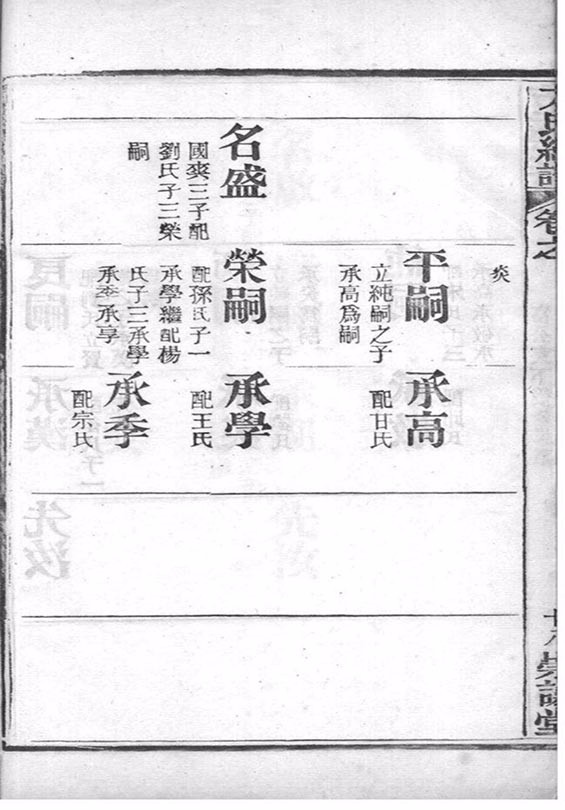 卷之
名盛
國爽三子配
劉氏子三榮
嗣
炎
平嗣
立純嗣之子
承高爲嗣
榮嗣
配孫氏子一
承學繼配楊
氏子三承學
承季承享
承高
配甘氏
承學
配王氏
承季
配宗氏